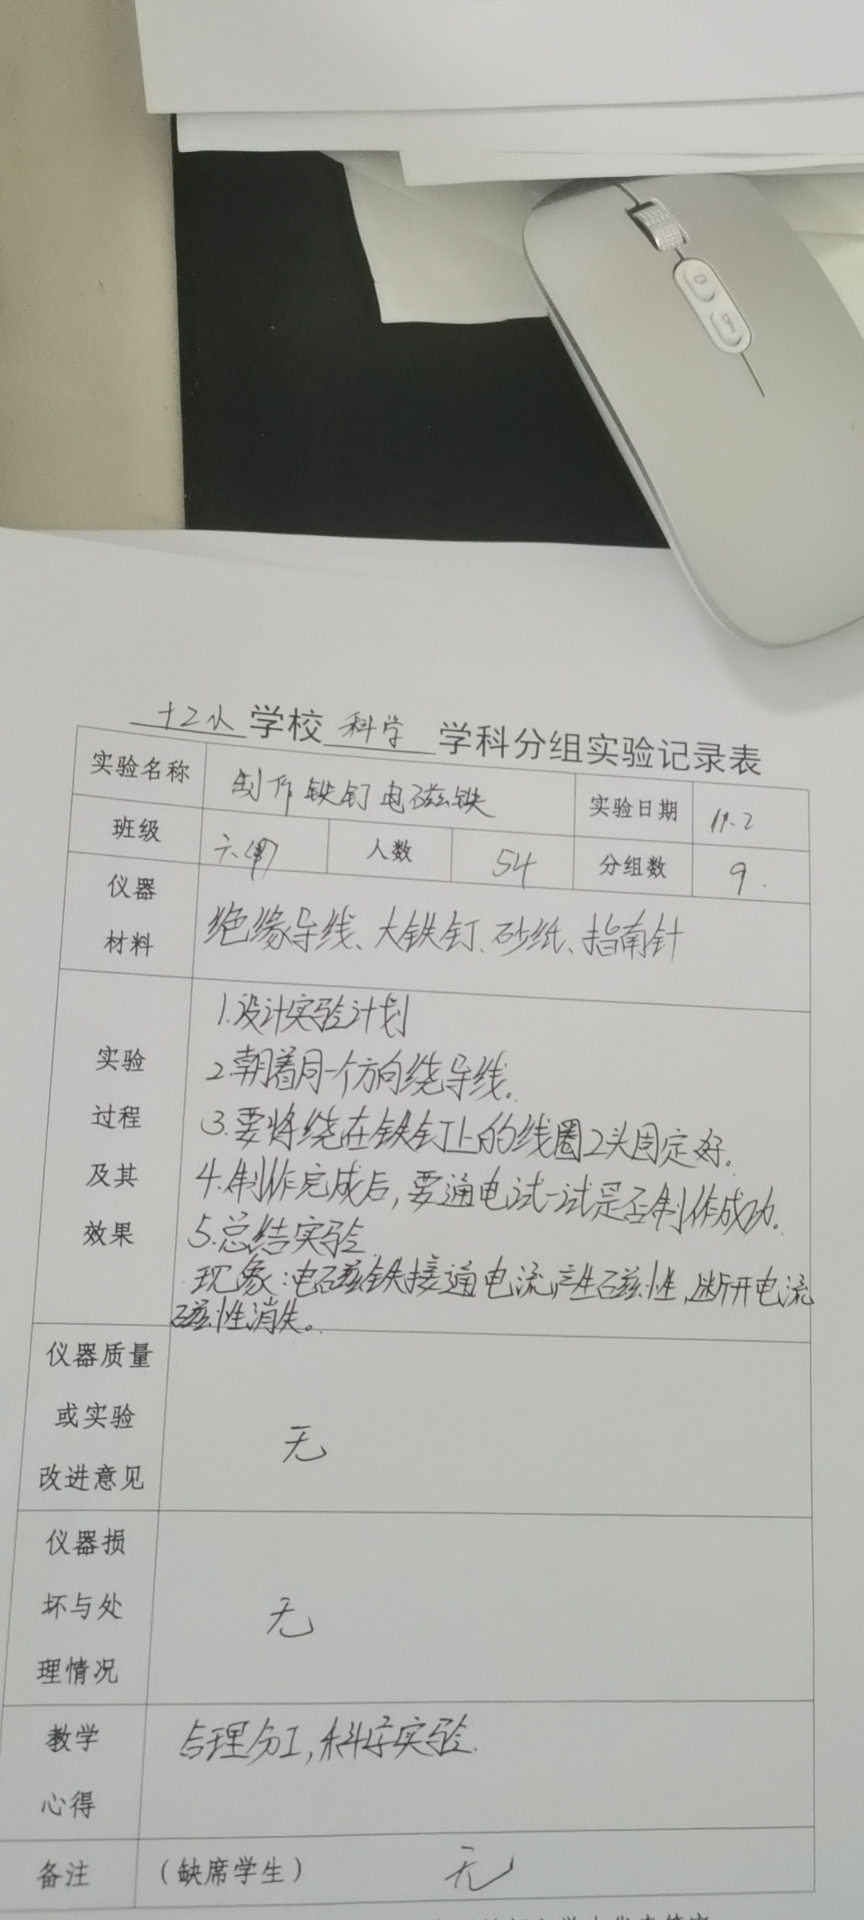 十二小学校科学学科分组实验记录表
实验名称 制作铁钉电磁铁 实验日期 11.2
班级 六 人数 54 分组数 9.
仪器材料 绝缘导线、大铁钉、砂纸、指南针
实验过程及其效果
1.设计实验计划
2.朝着同一个方向绕导线。
3.要将绕在铁钉上的线圈2头固定好。
4.制作完成后,要通电试一试是否制作成功。
5.总结实验
现象:电磁铁接通电流产生磁性,断开电流
磁性消失。
仪器质量
或实验
改进意见 无
仪器损
坏与处
理情况 无
教学
心得 合理分工,科学实验.
备注 (缺席学生) 无